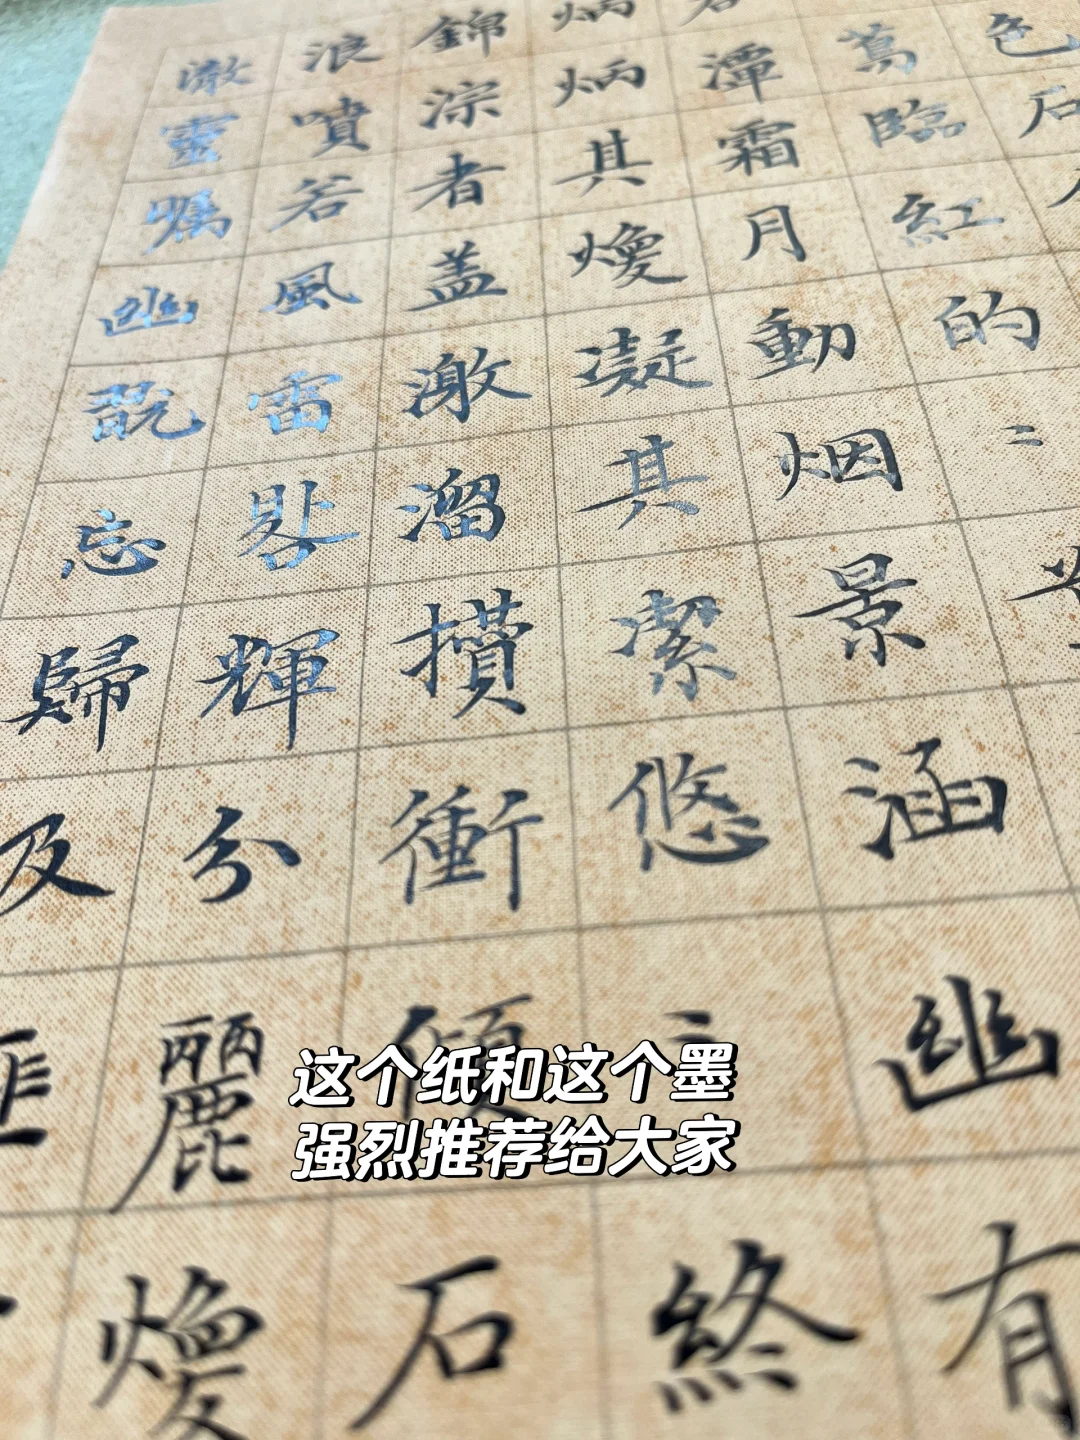 色石
蔦臨紅的二
潭霜月動烟景涵幽有
炳炳其煥凝其潔悠二終
錦淙者盖激溜攢衝傾石
浪噴若風雷輝分麗煥
澈靈矚幽翫忘歸及
这个纸和这个墨
强烈推荐给大家